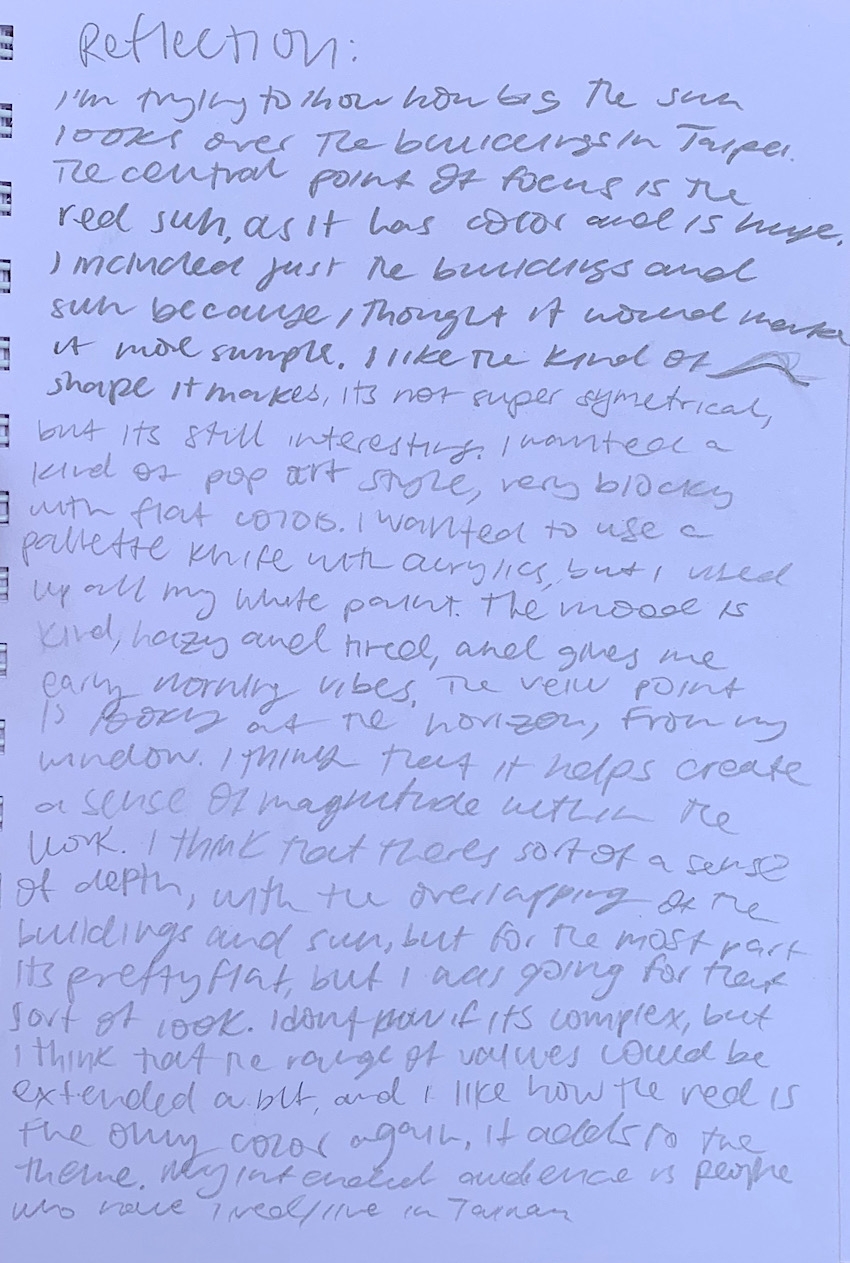 Reflection:
I'm trying to show how big the sun
looks over the buildings in Taipei.
The central point of focus is the
red sun, as it has color and is huge.
I included just the buildings and
sun because I thought it would make
it more simple. I like the kind of
shape it makes, its not super symetrical,
but its still interesting. I wanted a
kind of pop art style, very blocky
with flat colors. I wanted to use a
pallette knife with acrylics, but I used
up all my white paint. The mood is
kind, hazy and tired, and gives me
early morning vibes. The veiw point
is looking at the horizon, from my
window. I think that it helps create
a sense of magnitude within the
work. I think that theres sort of a sense
of depth, with the overlapping of the
buildings and sun, but for the most part
its pretty flat, but I was going for that
sort of look. I dont know if its complex, but
I think that the range of values could be
extended a bit, and I like how the red is
the only color again, it adds to the
theme. My intended audience is people
who have lived/live in Taiwan